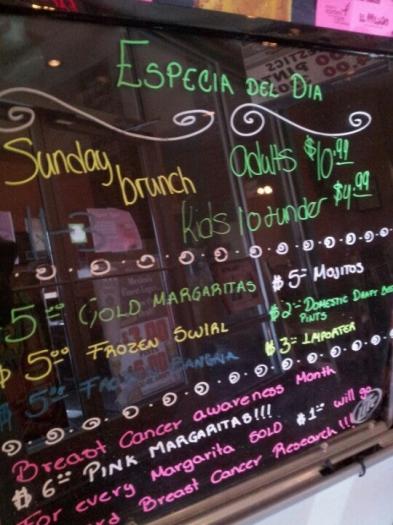 ESPECIA DEL DIA
Sunday brunch
Adults $10.99
Kids 10 & under $4.99
$5 — MOJITOS
5.00 GOLD MARGARITAS
$2 — DOMESTIC DRAFT BEE
PINTS
$5.00 FROZEN SWIRL
$3 — IMPORTER
$5.00 FROZEN SANGRIA
Breast Cancer awareness Month
$6 — PINK MARGARITAS!!!
For every Margarita SOLD $1 — will go
Breast Cancer Research!!!